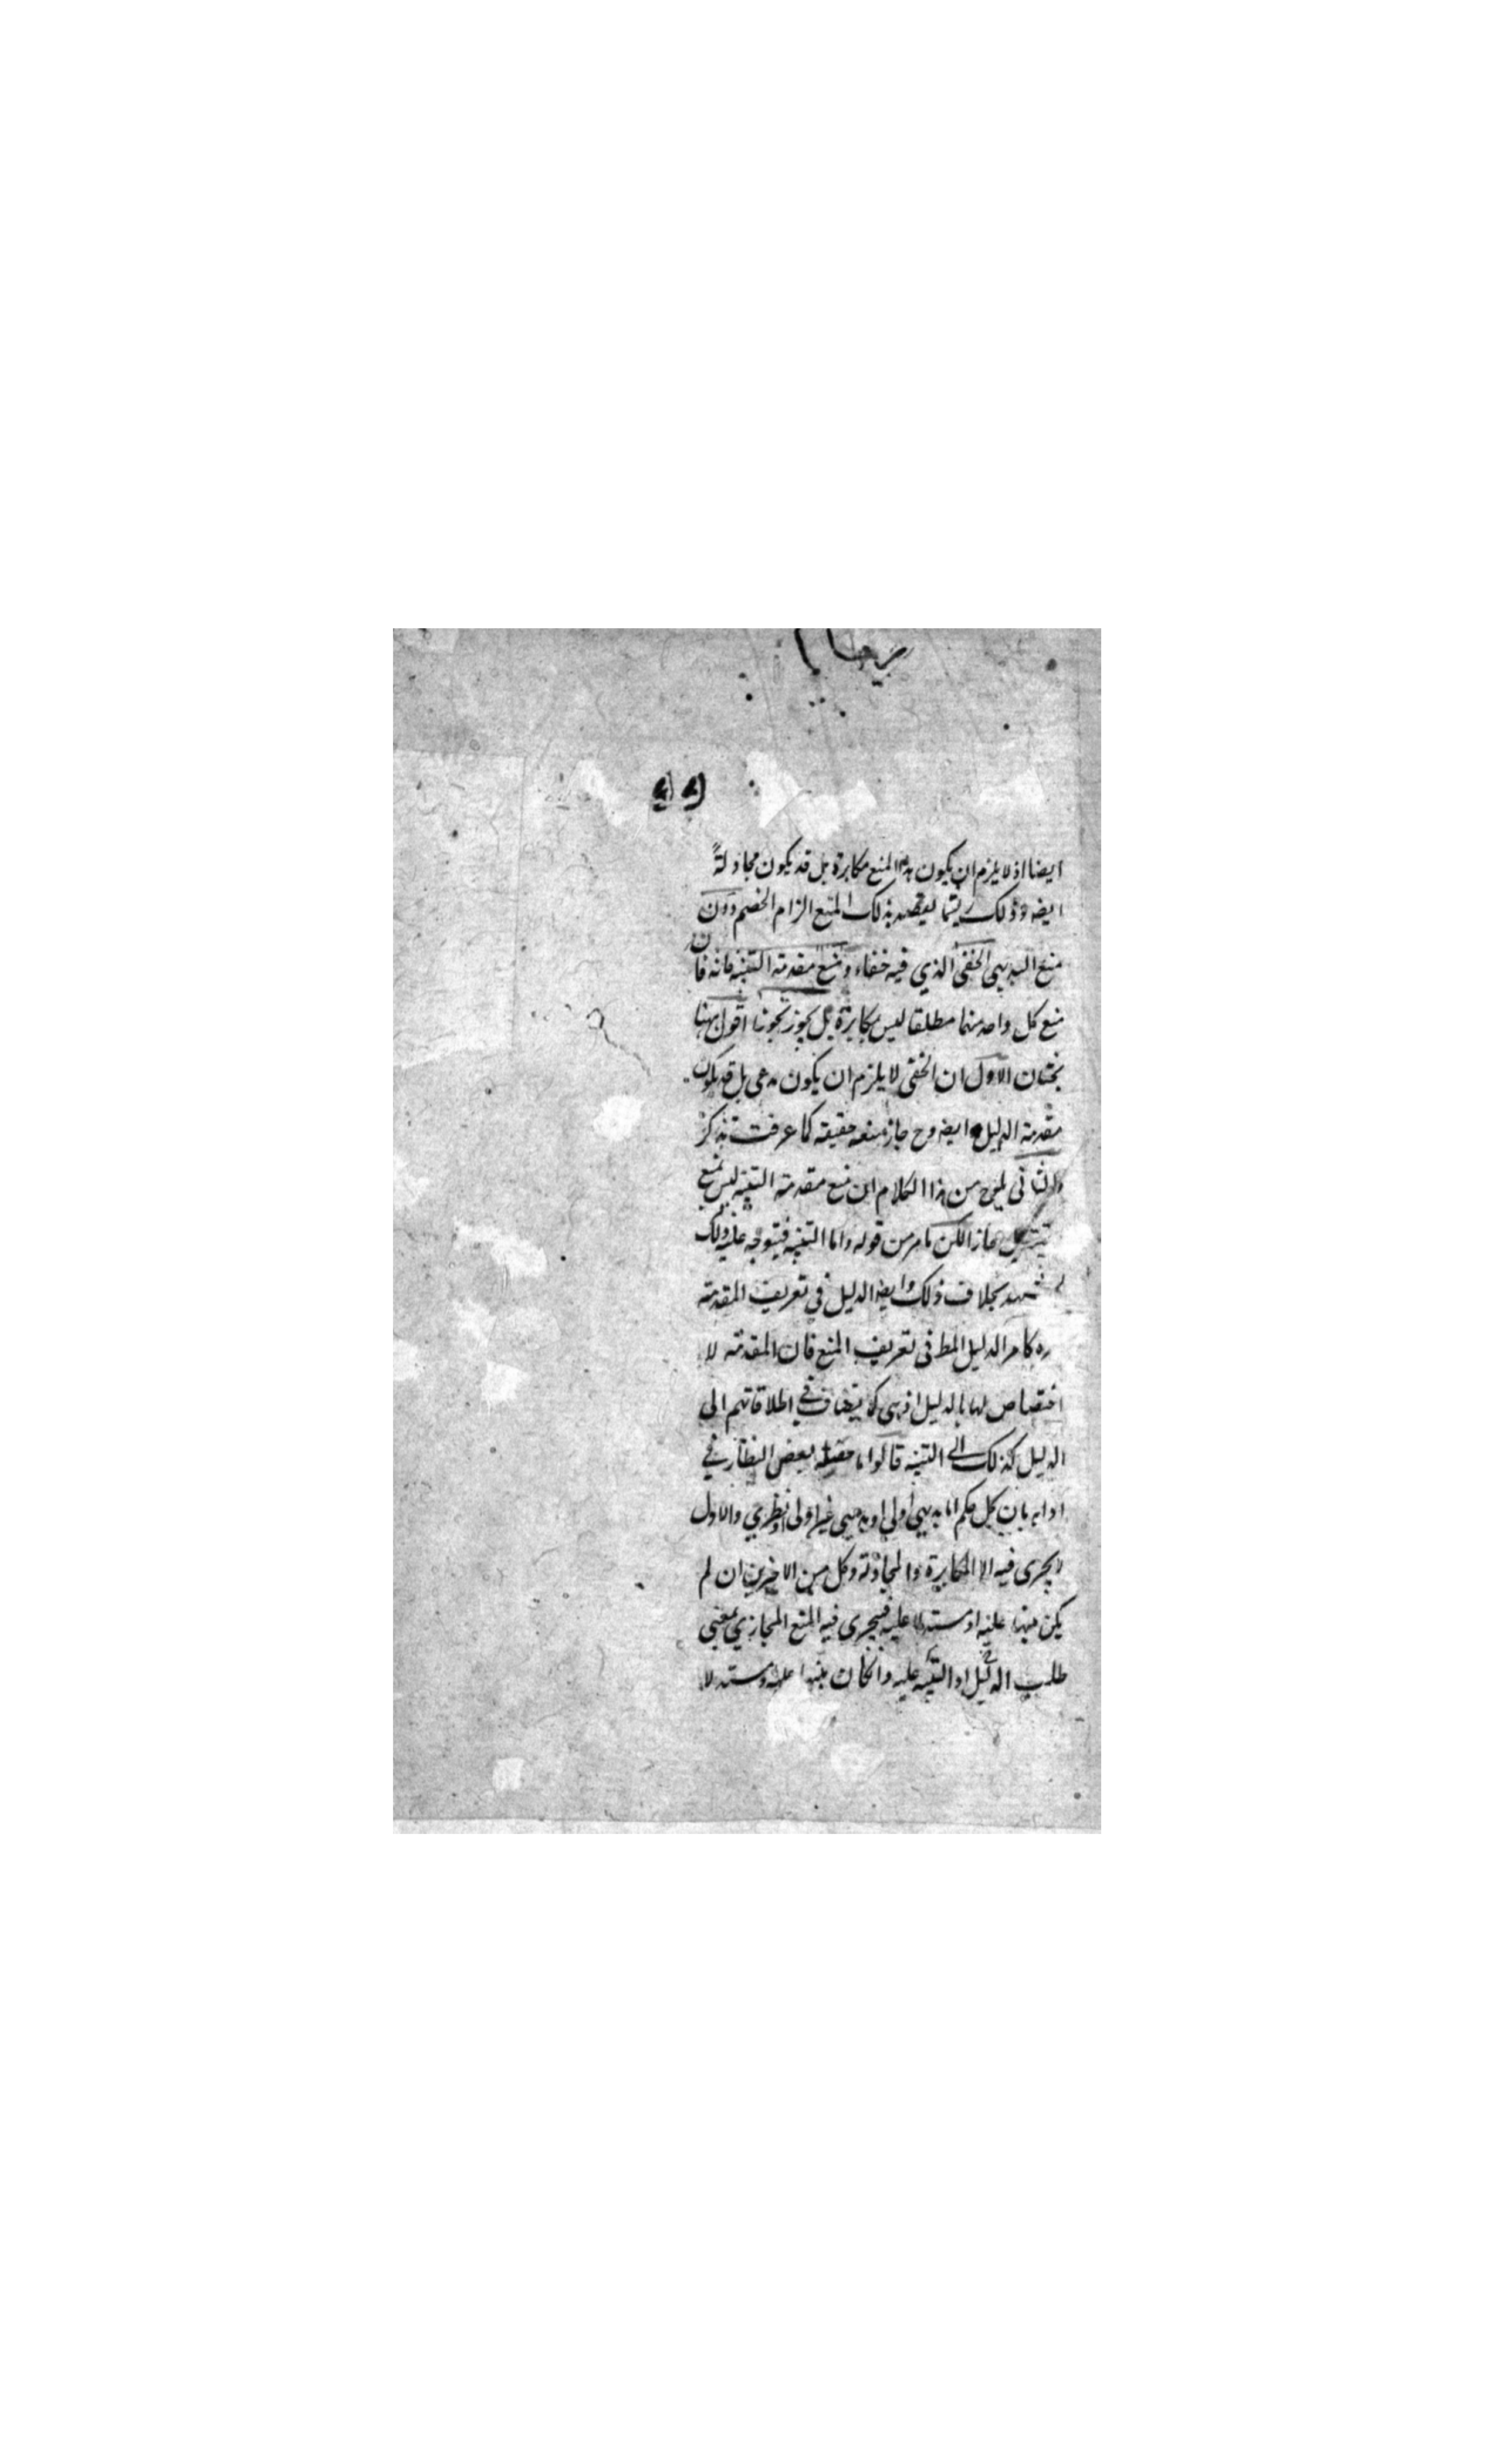 ايضا اذ لا يلزم ان يكون هذا المنع مكابرة بل قد يكون مجادلةً
ايضه وذلك يقصد بذلك المنع الزام الخصم دون
منع البديهي الخفي الذي فيه خفاء ومنع مقدمة التنبيه فانه فان
منع كل واحد منهما مطلقا ليس مكابرة بل يجوز تجوزا اقول ههنا
بحثان الاول ان الخفي لا يلزم ان يكون مدعى بل قد يكون
مقدمة الدليل ايضه وح جاز منعه حقيقة كما عرفت تذكر
والثاني يلوح من هذا الكلام ان منع مقدمة التنبيه ليس بمنع
مجازا لكن ما مر من قوله واما التنبيه فيتوجه عليه ذلك
يشهد بخلاف ذلك وايضه الدليل في تعريف المقدمة
كما مر الدليل المط في تعريف المنع فان المقدمة لا
اختصاص لها بالدليل اذ هي كما يضاف في اطلاقاتهم الى
الدليل كذلك الى التنبيه قالوا ما حققه بعض النظار في
ادابه بان كل حكم اما بديهي اولي او بديهي غير اولى او نظري والاول
لا يجرى فيه الا المكابرة والمجادلة وكل من الاخرين ان لم
يكن منبها عليه او مستدلا عليه فيجرى فيه المنع المجازي بمعنى
طلب الدليل او التنبيه عليه وانكان منبها عليه ومستدلا